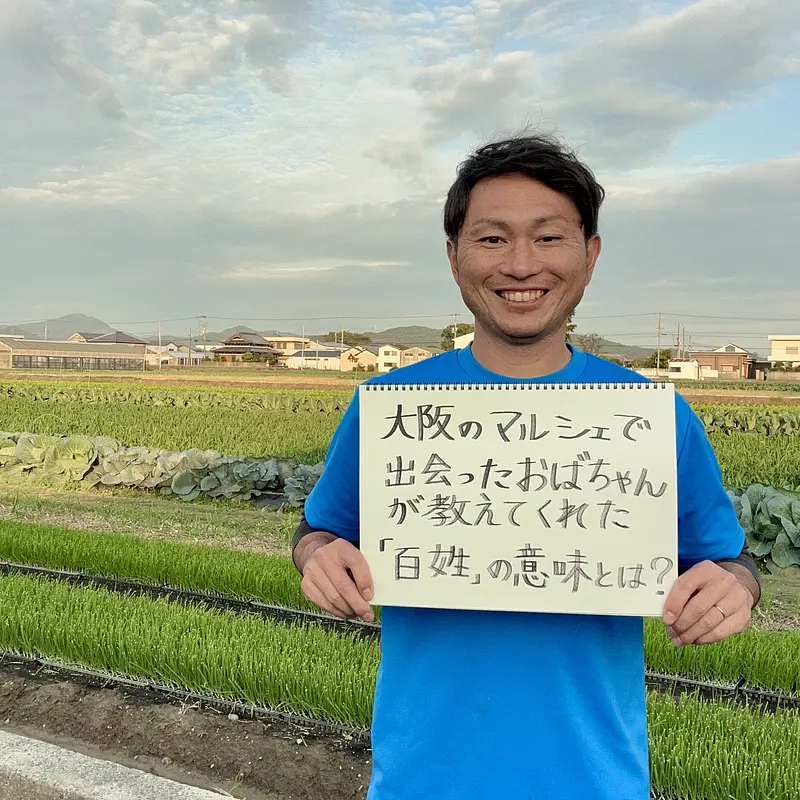 大阪のマルシェで
出会ったおばちゃん
が教えてくれた
「百姓」の意味とは?